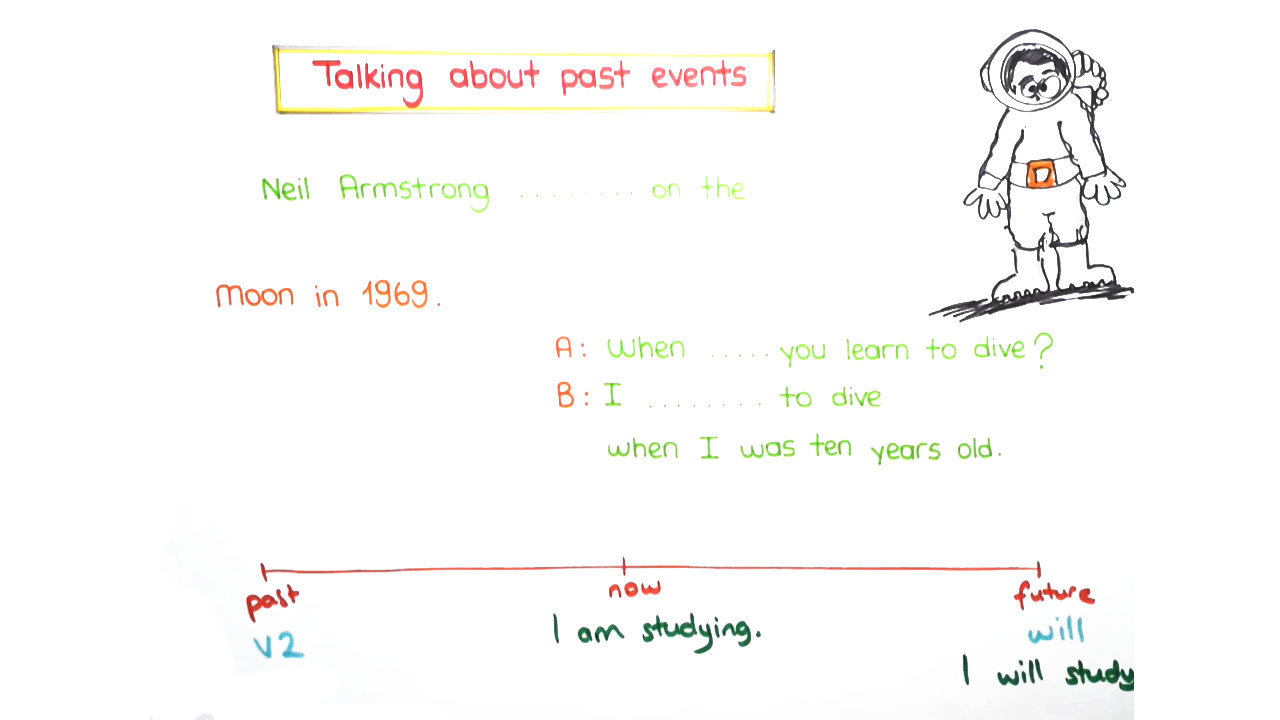 Talking about past events
Neil Armstrong ........ on the
Moon in 1969.
A: When ..... you learn to dive?
B: I ........ to dive
when I was ten years old.
past
now
future
V2
I am studying.
will
I will study